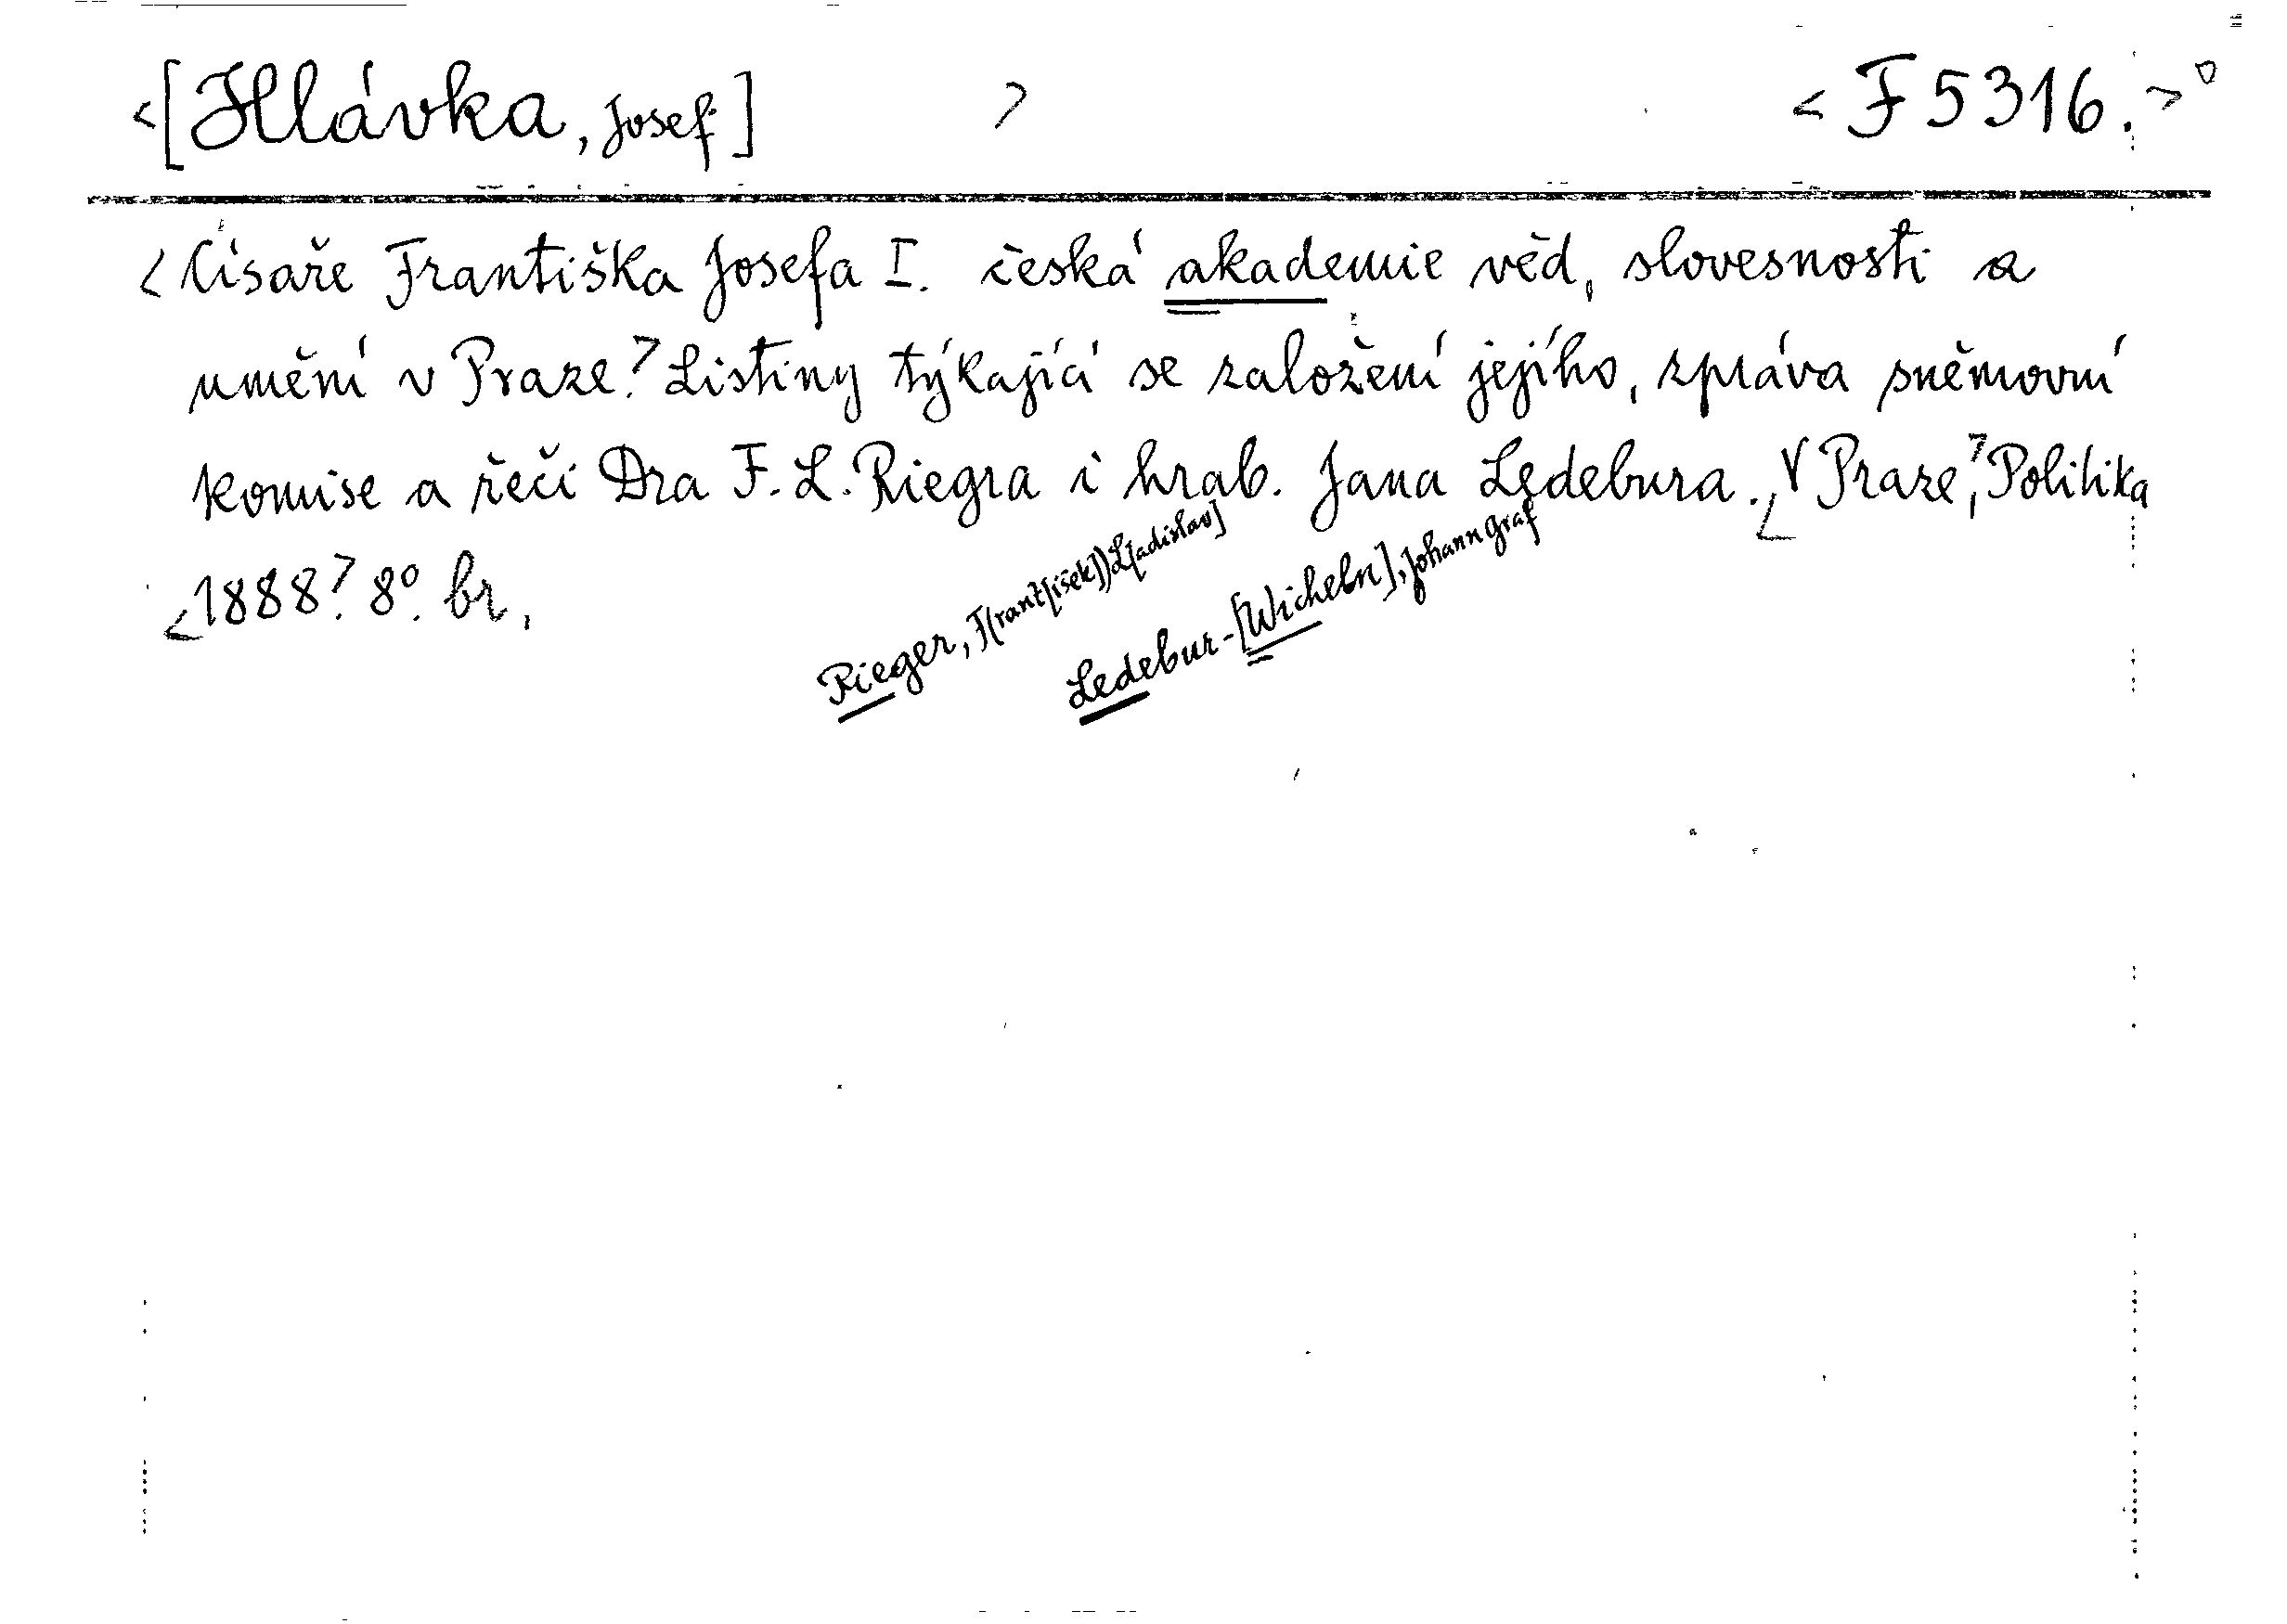 <[Hlávka, Josef] > <F 5316.>
<Císaře Františka Josefa I. česká akademie věd, slovesnosti a
umění v Praze.> Listiny týkající se založení jejího, zpráva sněmovní
komise a řeči Dra F. L. Riegra i hrab. Jana Ledebura. <V Praze,> Politika
<1888.> 8°. br.
Rieger, F(rant[išek]) L[adislav]
Ledebur-[Wicheln], Johann Graf